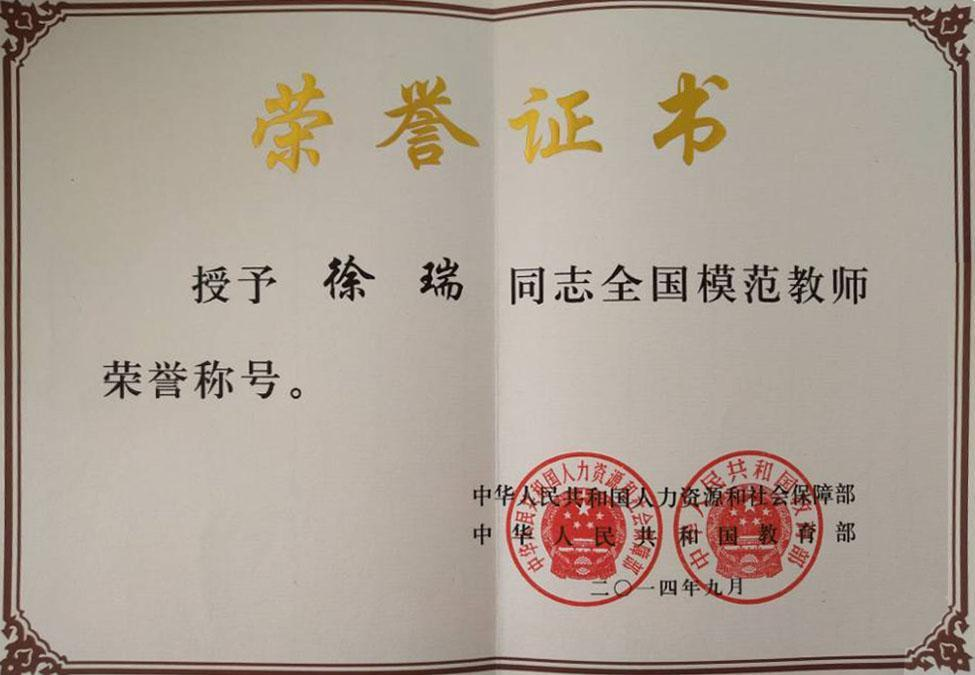 荣誉证书
授予 徐 瑞 同志全国模范教师
荣誉称号。
中华人民共和国人力资源和社会保障部
中华人民共和国教育部
二〇一四年九月
中华人民共和国人力资源和社会保障部
中华人民共和国教育部